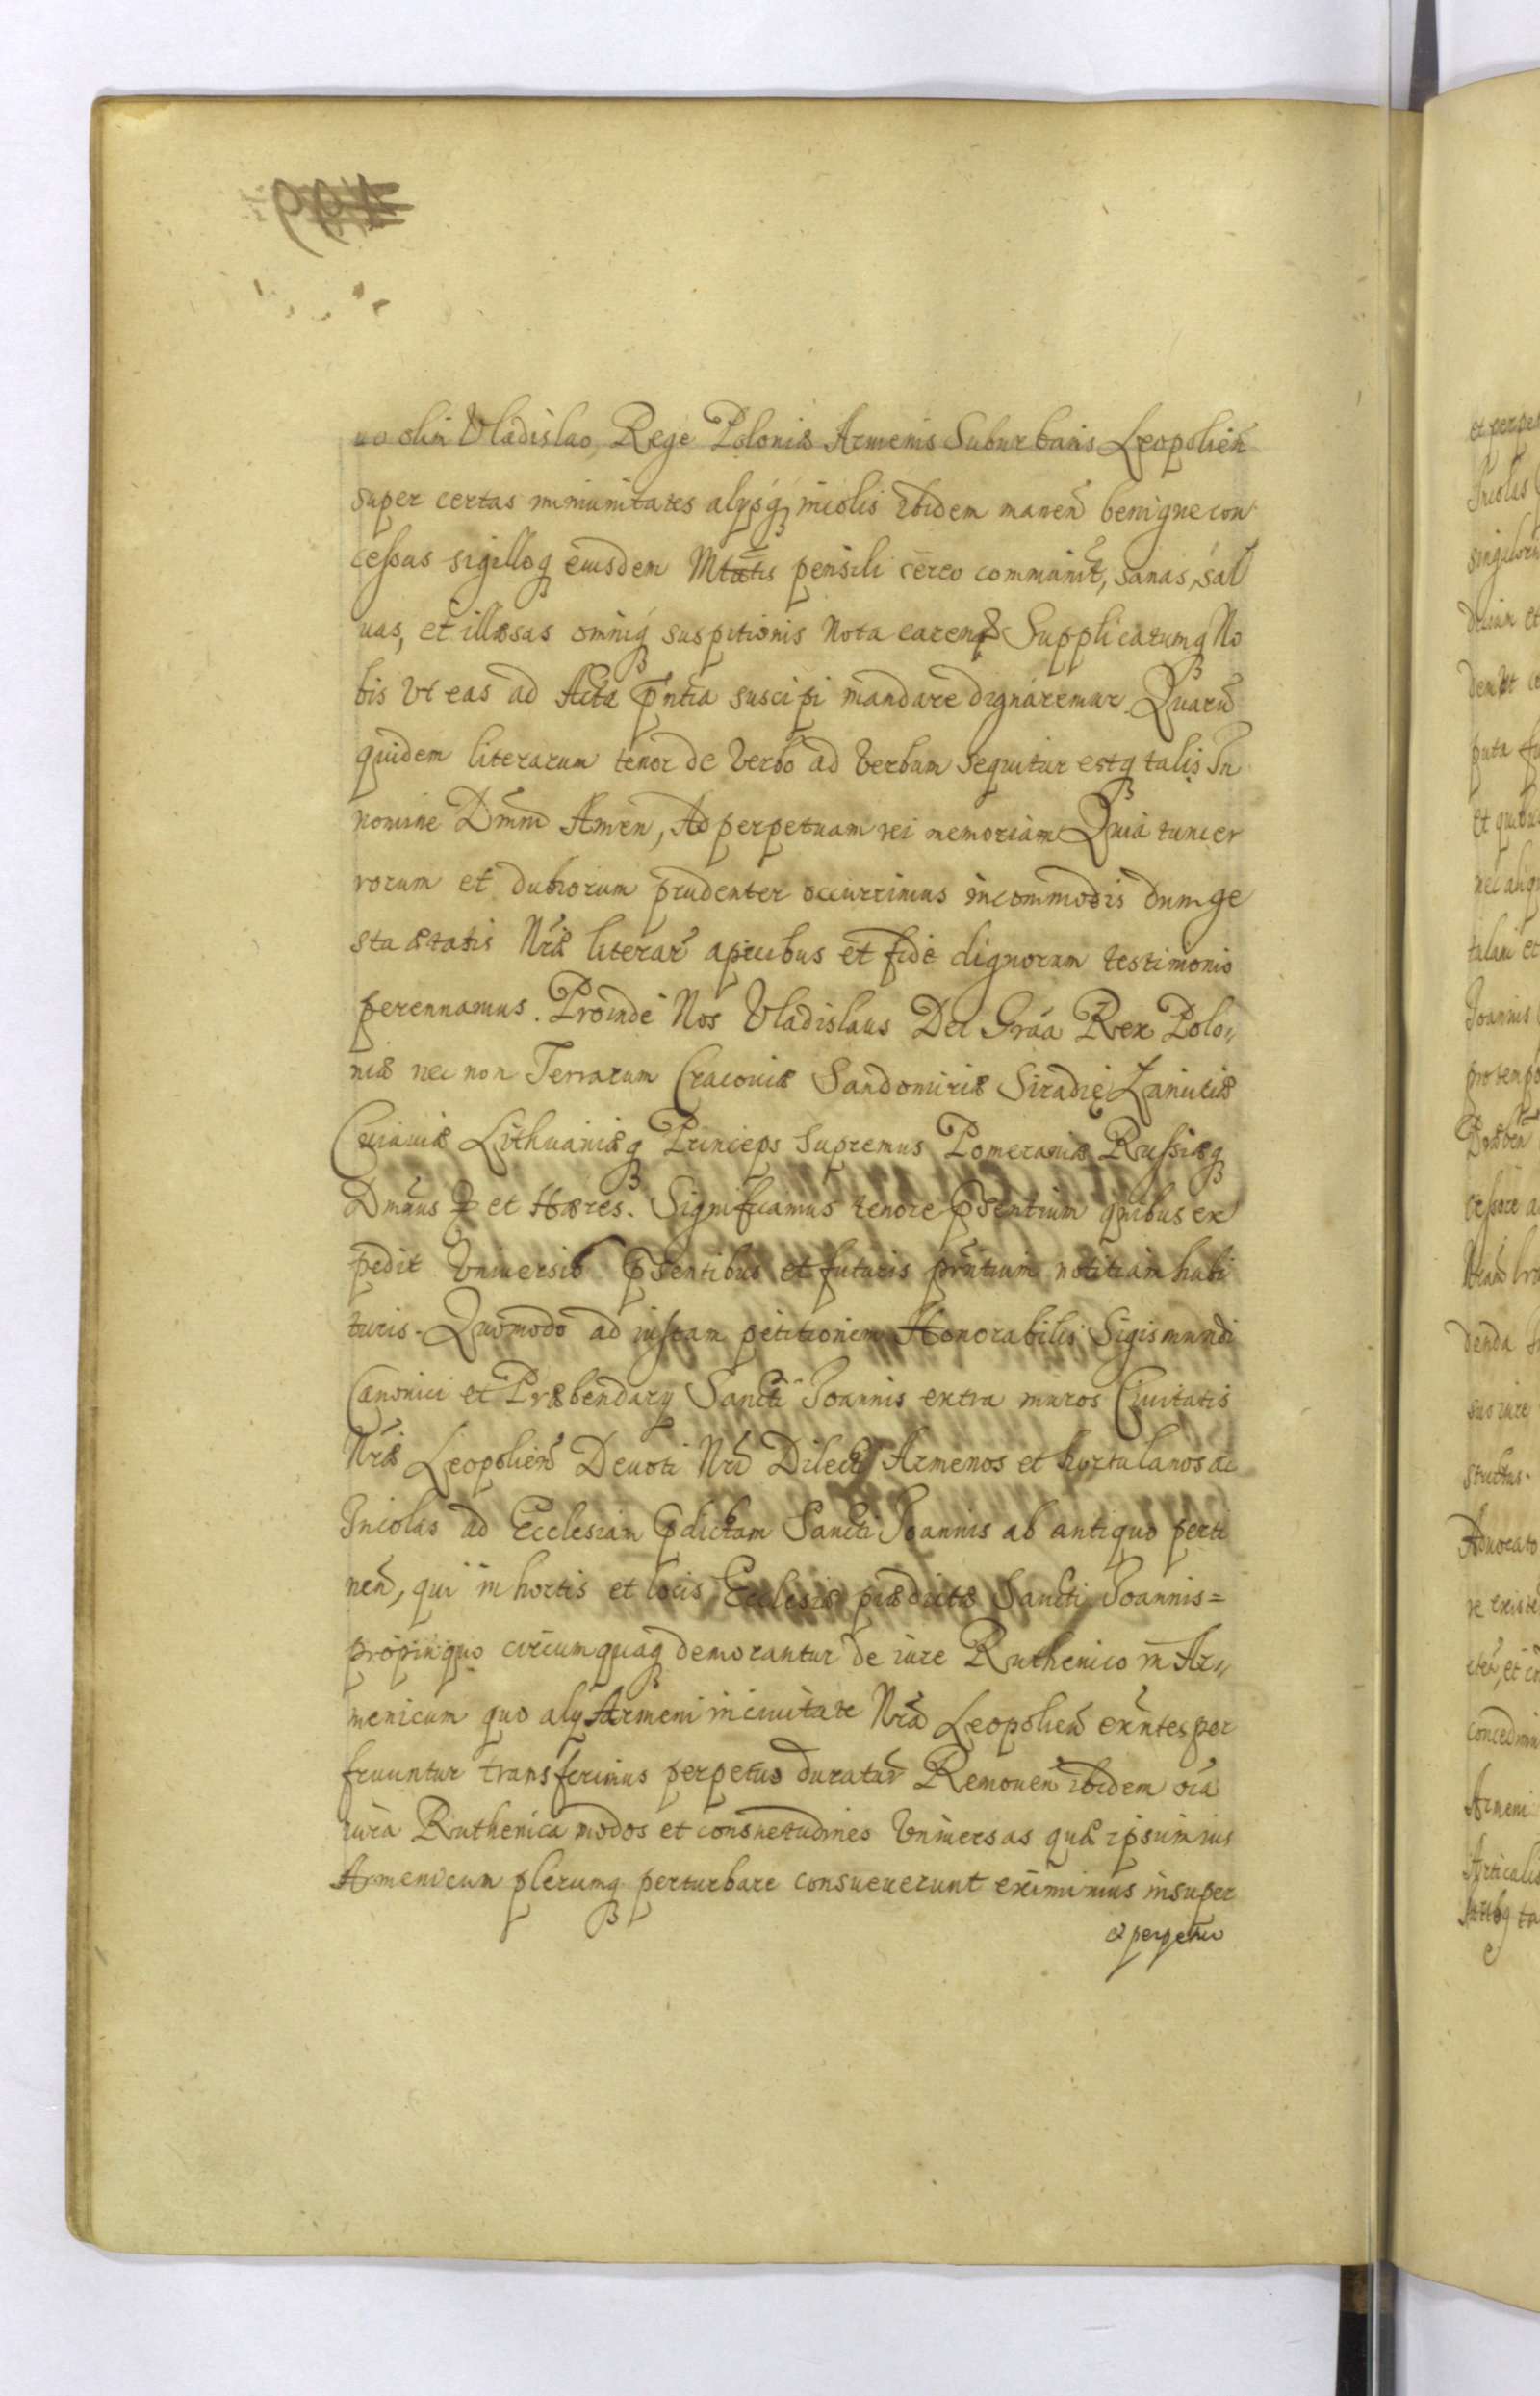 uo olim Vladislao Rege Poloniæ Armenis Suburbanis Leopolien̄
super certas immunitates alÿsq; incolis ibidem manen̄ benigne con
cessas sigilloq; eiusdem Mtatis pensili cereo communit̄, sanas, sal
uas, et illæsas omniq; suspitionis nota caren̄ Supplicatumq; No
bis Vt eas ad Acta p̄ntia suscipi mandare dignaremur. Quarū
quidem literarum tenor de verbo ad verbum sequitur estq; talis In
nomine Dm̄ni Amen, Ad perpetuam rei memoriam Quia tunc er
rorum et dubiorum prudenter occurrimus incommodis dum ge
sta ætatis Nr̄æ literar̄ apicibus et fide dignorum testimonio
perennamus. Proinde Nos Vladislaus Dei Gr̄aa Rex Polo„
niæ nec non Terrarum Cracouiæ Sandomiriæ Siradię Lanciciæ
Cuiauiæ Lithuaniæq; Princeps Supremus Pomeraniæ Russiæq;
Dm̄nus et Hæres. Significamus tenore p̄sentium quibus ex
pedit Vniuersis p̄sentibus et futuris pr̄ntium notitiam habi
turis. Quomodo ad iustam petitionem Honorabilis Sigismundi
Canonici et Præbendarÿ Sancti Joannis extra muros Ciuitatis
Nr̄æ Leopolien̄ Deuoti Nr̄i Dilecti Armenos et hortulanos ac
Incolas ad Ecclesiam p̄dictam Sancti Joannis ab antiquo perti
nen̄, qui in hortis et locis Ecclesiæ prædictæ Sancti Joannis=
propinquo circumquaq; demorantur de iure Ruthenico in Ar„
menicum quo alÿ Armeni in ciuitate Nr̄a Leopolien̄ exn̄tes per
fruuntur transferimus perpetuo duratur̄ Remouen̄ ibidem oīa
iura Ruthenica modos et consuetudines Vniuersas quæ ipsum ius
Armenicum plerumq; perturbare consueuerunt eximimus insuper
& perpetuo